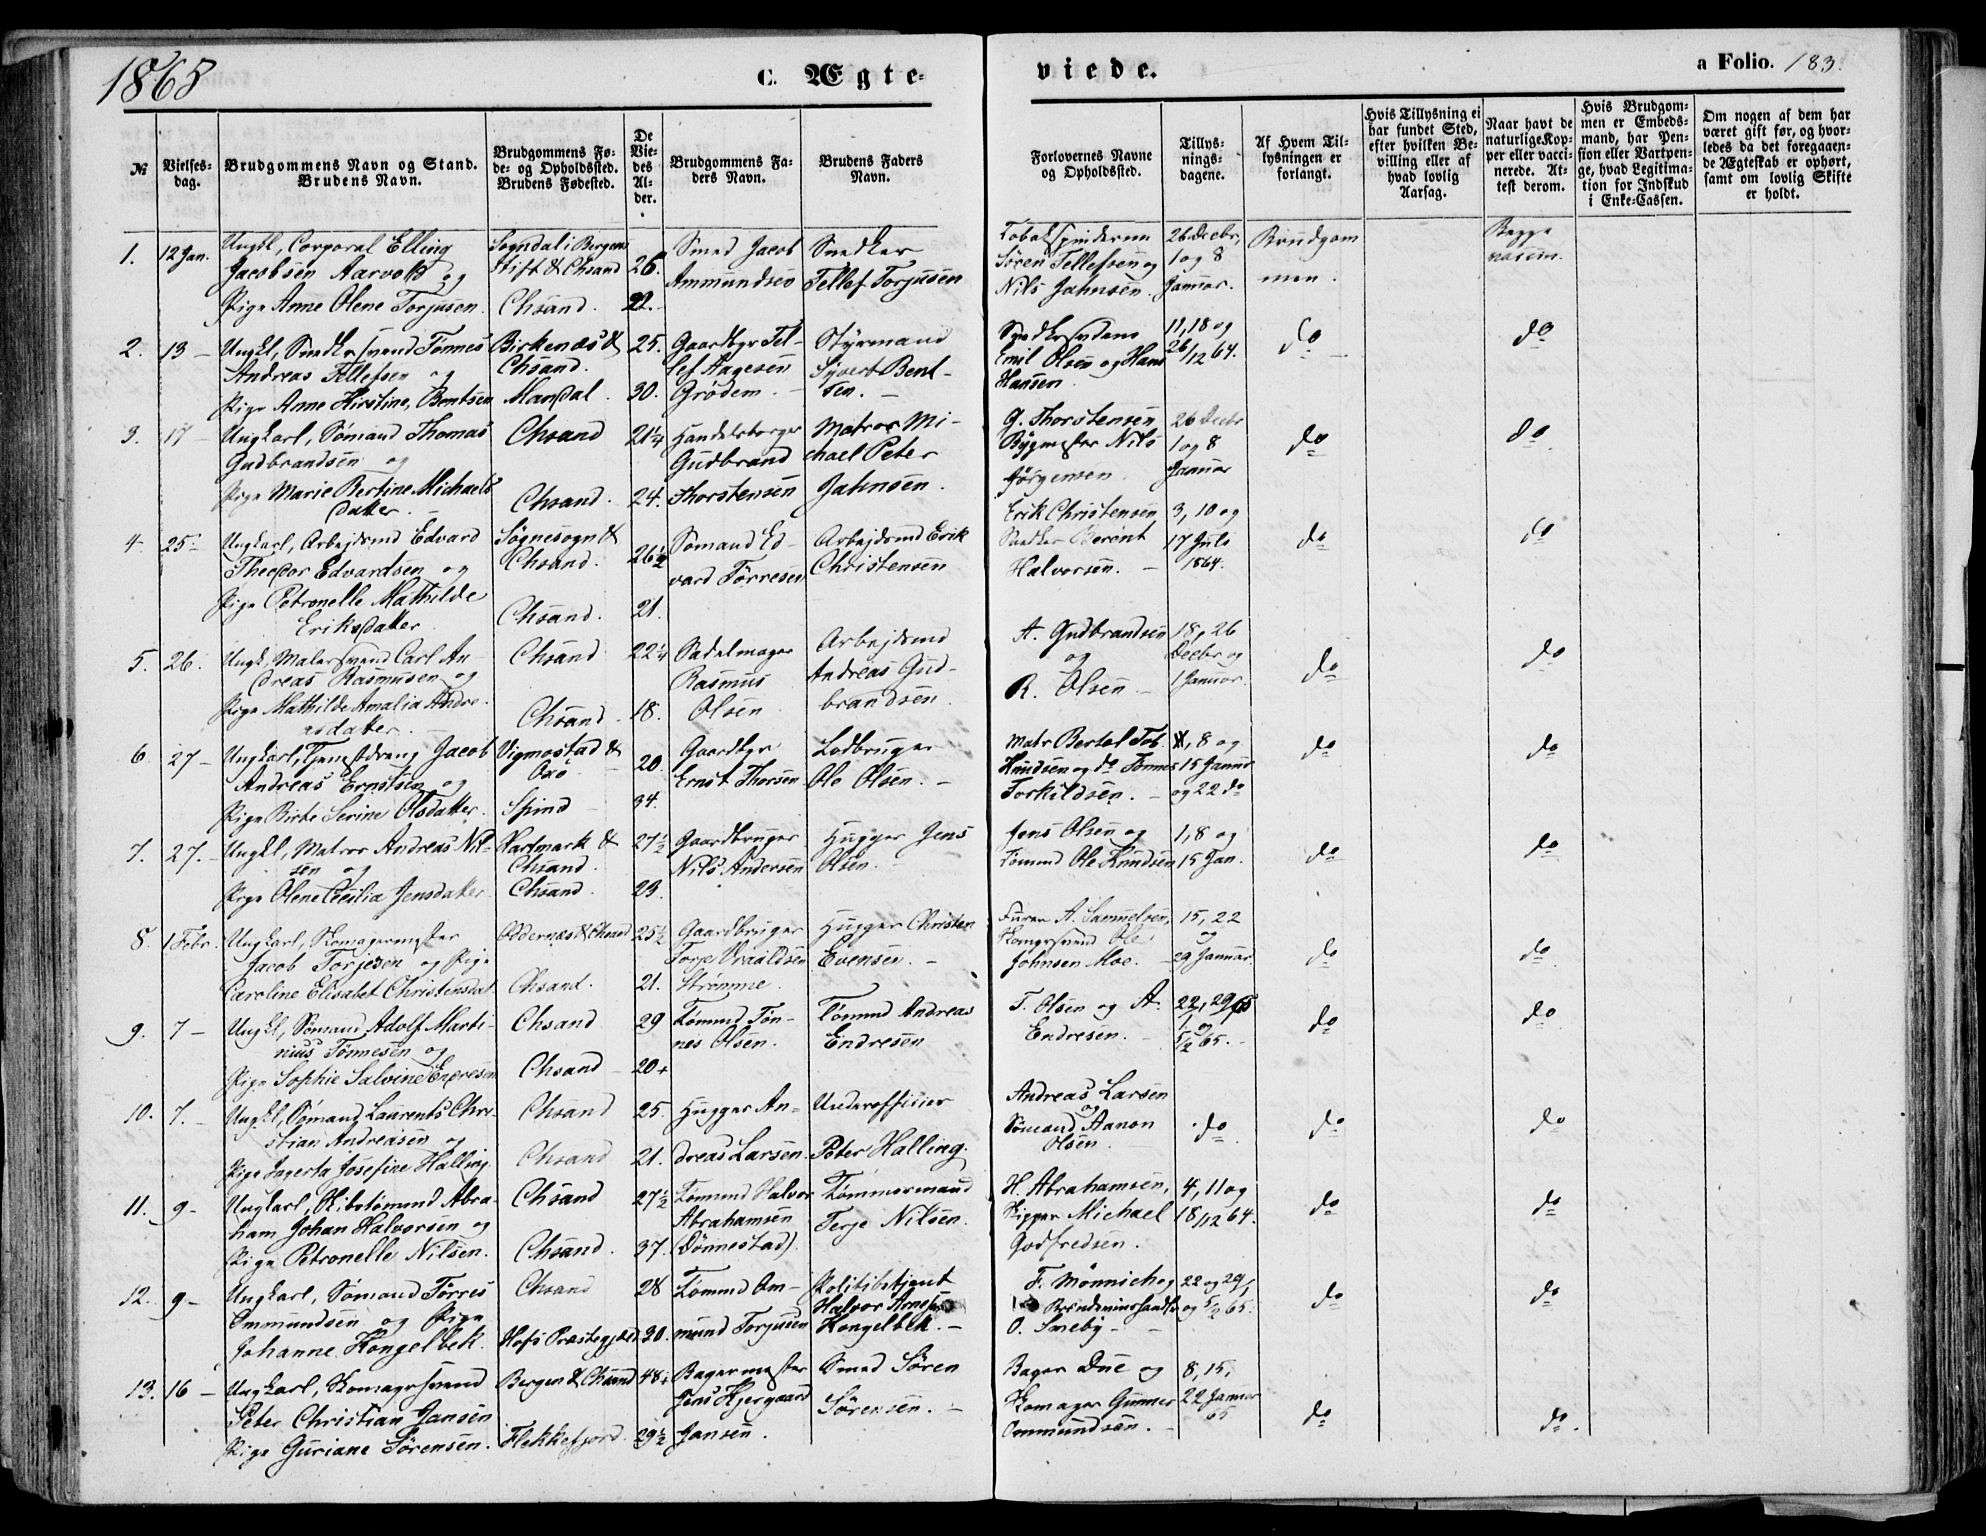 1865
C. Ægte-
viede.
a Folio. 183.
№
Vielses-
dag.
Brudgommens Navn og Stand.
Brudens Navn.
Brudgommens Fø-
de- og Opholdssted.
Brudens Fødested.
De
Vie-
des
Al-
der.
Brudgommens Fa-
ders Navn.
Brudens Faders
Navn.
Forlovernes Navne
og Opholdssted.
Tillys-
nings-
dagene.
Af Hvem Til-
lysningen er
forlangt.
Hvis Tillysning ei
har fundet Sted,
efter hvilken Be-
villing eller af
hvad lovlig
Aarsag.
Naar havt de
naturlige Kop-
per eller vacci-
nerede. At-
test derom.
Hvis Brudgom-
men er Embeds-
mand, har Pen-
sion eller Vartpen-
ge, hvad Legitima-
tion for Indskud
i Enke-Cassen.
Om nogen af dem har
været gift før, og hvor-
ledes da det foregaaen-
de Ægteskab er ophørt,
samt om lovlig Skifte
er holdt.
1. 12 Jan.
Ungkl, Corporal Elling
Jacobsen Aarvold og
Pige Anne Olene Torjusen.
Sogndal i Bergens
Stift & Chsand
Chsand.
26.
22.
Smed Jacob
Ammundsen
Snedker
Tellef Torjusen
Tobakspinderne
Søren Tellefsen og
Nils Jahnsen.
26 Decbr,
1 og 8
Januar.
Brudgom
men.
Begge
vaccin.
2. 13 –
Ungkl, Snedkersvend Tønnes
Andreas Tellefsen og
Pige Anne Kirstine Bentsen
Birkenæs &
Chsand.
Mandal.
25.
30.
Gaardbgr Tel-
lef Aagesen
Grødem.
Styrmand
Syvert Bent-
sen.
Snedkersvendene
Emil Olsen og Hans
Hansen
11, 18 og
26/12 64.
do
do
3. 17 –
Ungkarl, Sømand Thomas
Gudbrandsen og
Pige Marie Bertine Michaels
datter.
Chsand
Chsand.
21¼
24.
Handelsborger
Gudbrand
Thorstensen
Matros Mi-
chael Peter
Jahnsen.
G. Thorstensen
Bygmester Nils
Jørgensen
26 Decbr
1 og 8
Januar
do
do
4. 25 –
Ungkarl, Arbejdsmd Edvard
Theodor Edvardsen og
Pige Petronelle Mathilde
Eriksdatter
Søgnesogn &
Chsand.
Chsand.
26½
21.
Sømand Ed-
vard Tørresen
Arbejdsmd Erik
Christensen
Erik Christensen
Snedker Berent
Halvorsen.
3, 10 og
17 Juli
1864.
do
do
5. 26.
Ungk, Malersvend Carl An-
dreas Rasmusen og
Pige Mathilde Amalia Andre-
asdatter.
Chsand
Chsand
22¼
18.
Sadelmager
Rasmus
Olsen
Arbejdsmd
Andreas Gud-
brandsen
A. Gudbrandsen
og
R. Olsen
18, 26
Decbr og
1 Januar.
do
do
6 27 –
Ungkarl, Tjenestdreng Jacob
Andreas Ernstsen og
Pige Birte Serine Olsdatter.
Vigmostad &
Oxø
Spind
20.
34.
Gaardbgr
Ernst Thorsen
Lodbruger
Ole Olsen.
Matr Bertel Tob.
Knudsen og do Tønnes
Torkildsen.
1, 8 og
15 Januar
og 22 do
do
do
7. 27. –
Ungkl, Matros Andreas Nil-
sen og
Pige Olene Cecilia Jensdatter
Hartmark &
Chsand.
Chsand.
27½
23.
Gaardbruger
Nils Andersen
Hugger Jens
Olsen.
Jens Olsen og
Tømmd Ole Knudsen
1, 8 og
15 Jan.
do
do
8. 1 Febr.
Ungkarl, Skomagermester
Jacob Torjesen og Pige
Caroline Elisabet Christensdat.
Oddernæs & Chsand
Chsand.
25½
21.
Gaardbruger
Torje Vraaldsen
Strømme
Hugger Christen
Evensen.
Furer A. Samuelsen,
Skomgrsvend Ole
Johnsen Moe.
15, 22
og
29 Januar.
do
do
9. 7 –
Ungkl, Sømand Adolf Marti-
nius Tønnesen og
Pige Sophie Salvine Endresen
Chsand
Chsand
29
20+
Tømmd Tøn-
nes Olsen.
Tømmd Andreas
Endresen
T. Olsen og A.
Endresen.
22, 29/1 65
og
5/2 65.
do
do
10. 7. –
Ungkl, Sømand Laurents Chri-
stian Andreasen og
Pige Ingerta Josefine Halling.
Chsand
Chsand
25.
21.
Hugger An-
dreas Larsen.
Underofficier
Peter Halling.
Andreas Larsen
og
Sømand Aanon
Olsen.
do
do
do
11. 9 –
Ungkarl, Skibstømmd Abra-
ham Johan Halvorsen og
Pige Petronelle Nilsen.
Chsand
Chsand.
27½
37.
Tømmd Halvor
Abrahamsen
(Dønnestad).
Tømmermand
Terje Nilsen.
H. Abrahamsen,
Skipper Michael
Godfredsen.
4, 11 og
18/12 64.
do
do
12. 9 –
Ungkarl, Sømand Tørres
Ommundsen og Pige
Johanne Kongelbek.
Chsand
Hofs Præstegjæld
28
30.
Tømmd Om-
mund Torjusen
Politibetjent
Halvor Arnesen
Kongelbek.
F. Mønnich og
Brændeviinshandler
O. Smeby
22 og 29/1
og 5/2 65.
do
do
13. 16 –
Ungkarl, Skomagrsvend
Peter Christian Jansen
Pige Guriane Sørensen.
Bergen & Chsand
Flekkefjord.
48+
29½
Bagermester
Jens Hjergaard
Jansen.
Smed Søren
Sørensen.
Bager Due og
Skomager Gunner
Ommundsen.
8, 15,
22 Januar
65
do
do.